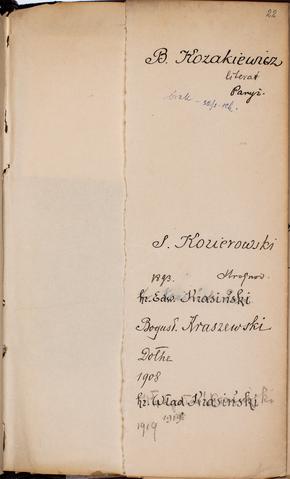 22
B. Kozakiewicz
literat
Paryż.
brak
S. Kozierowski
1893.
hr. Edw. Krasiński
Bogusł. Kraszewski
Dołhe
1908
hr. Wład Krasiński
1919
1919